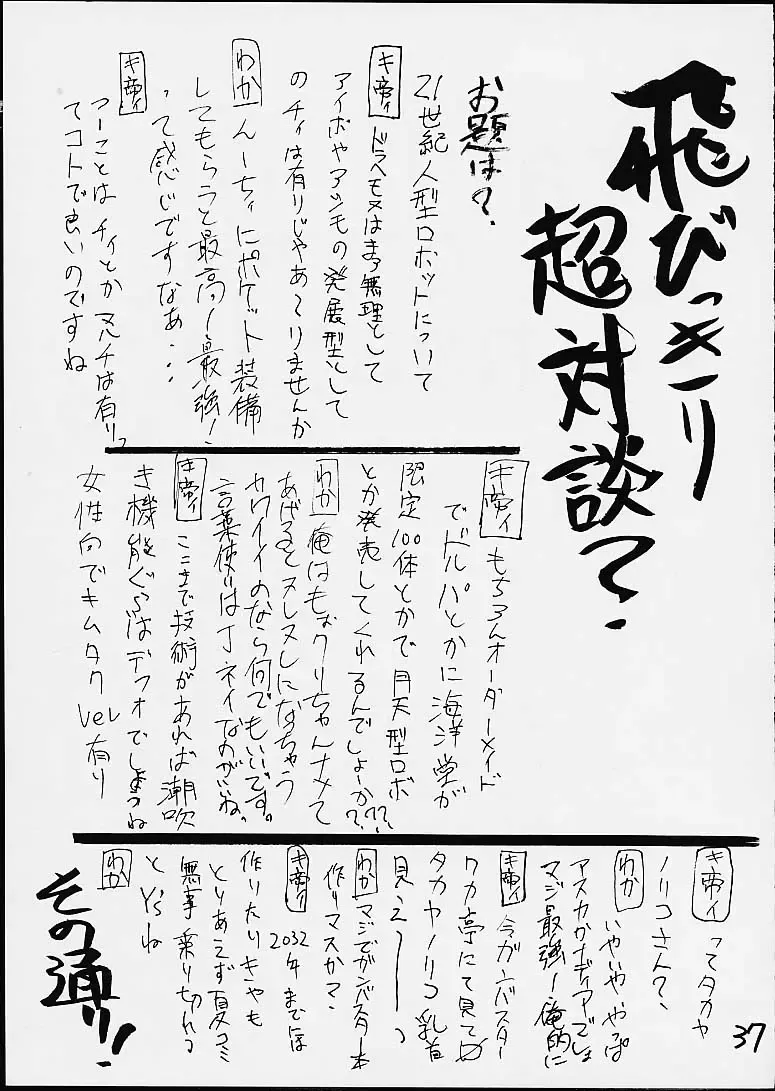 飛びっきり
超対談?
お題は?
21世紀人型ロボットについて
キ帝ィ ドラヘモヌはまず無理として
アイボやアシモの発展型として
のチィは有りじゃあ〜りませんか
わか んーちぃにポケット装備
してもらうと最高ー!最強!
って感じですなぁ・・・
キ帝ィ
つーことは チィとか マルチは有りっ
てコトで良いのですね
キ帝ィ もちろんオーダーメイド
でドルパとかに海洋堂が
限定100体とかで月天型ロボ
とか発売してくれるんでしょーか???
わか 俺はもぉクリちゃんナメて
あげるとヌレヌレになっちゃう
カワイイのなら何でもいいです。
言葉使いは丁ネイなのがいいね。
キ帝ィ ここまで技術があれば潮吹
き機能ぐらいはデフォでしょうね
女性向でキムタクver有り
キ帝ィ ってタカヤ
ノリコさん?
わか いやいややっぱ
アスカかナディアでしょ
マジ最強ー!俺的に
キ帝ィ 今ガンバスター
ワカ亭にて見てめ
タカヤノリコ乳首
見えーーっ
わか マジでガンバスター本
作りマスか?
キ帝ィ 2032年までには
作りたりきゃも
とりあえず夏コミ
無事乗り切れる
と Y'sね
わか
その通り!
37